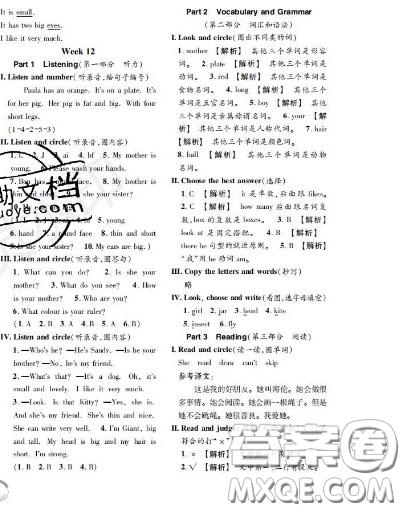 It is small.
It has two big eyes.
I like it very much.
Week 12
Part 1 Listening(第一部分 听力)
I. Listen and number(听录音,给句子编号)
Paula has an orange. It's on a plate. It's
for her pig. Her pig is fat and big. With four
short legs.
(1-4-2-5-3)
II. Listen and circle(听录音,圈内容)
1. L 2. J 3. ai 4. bf 5. My mother is
young. 6. Please wash your hands.
7. Ben has a round face. 8. My brother is
9. Is she your sister?
案
1. 3. 4. 5. young
6. hand 7. a round face 8. thin and short
9. Is she your sister? 10. My ears are big.
III. Listen and circle(听录音,圈答句)
1. What can you do? 2. Is she your
mother? 3. What do you see? 4. How
is your mother? 5. Who are you?
6. What colour is your ruler?
(1. A 2. B 3. B 4. A 5. B 6. A)
IV. Listen and circle(听录音,圈内容)
1. —Who's he? —He's Sandy. —Is he your
brother? —No, he's my friend.
2. —What's that? —It's a dog. Oh, it's
small and lovely. I like it very much.
3. —Look. Is that Kitty? —Yes, she is.
And she's my friend. She's thin and nice.
She can write very well. 4. I'm Giant, big
and tall. My head is big and my hair is
short. I'm strong.
(1. B 2. B 3. B 4. B)
Part 2 Vocabulary and Grammar
(第二部分 词汇和语法)
I. Look and circle(圈出不同类的词)
1. mother 【解析】 其他三个单词是形容
词。 2. plate 【解析】 其他三个单词是
动词。 3. red 【解析】 其他三个单词是
食物名词。 4. long 【解析】 其他三个
单词是五官名词。 5. boy 【解析】 其他
三个单词是亲属称谓名词。 6. your 【解
析】 其他三个单词是人称代词。 7. hair
【解析】 其他三个单词是颜色名词。
8. ball 【解析】 其他三个单词是动物
名词。
II. Choose the best answer(选择)
1. C 【解析】 it是单数,后面跟likes。
2. C 【解析】 how many后面跟名词复
数,box的复数是boxes。 3. B 【解析】
look at是固定搭配。 4. B 【解析】
there be句型的就近原则。 5. A 【解析】
“我”用be动词am。
III. Copy the letters and words(抄写)
略
IV. Look, choose and write(看图,选字母填空)
1. girl 2. jar 3. hand 4. boat
5. insect 6. fly
Part 3 Reading(第三部分 阅读)
I. Read and circle(读一读,圈单词)
She read draw can't skip
参考译文:
这是我的好朋友。她叫海伦。她会做很
多事情。她会阅读。她会画一棵绿树。但是
她不会跳绳。她很善良。我爱她。
II. Read and judge
符合的打“
1. × 【解析】
2. √ 【解析】
答案卷
MXQE.COM